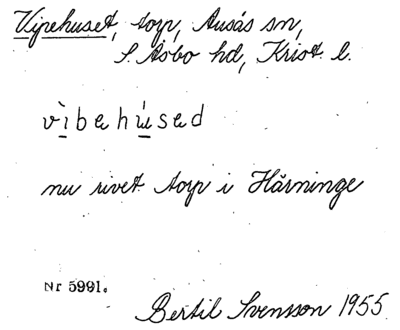 Vipehuset, torp, Ausås sn,
S. Åsbo hd, Krist. l.
vìbehúsed
nu rivet torp i Härninge
Nr 5991.
Bertil Svensson 1955